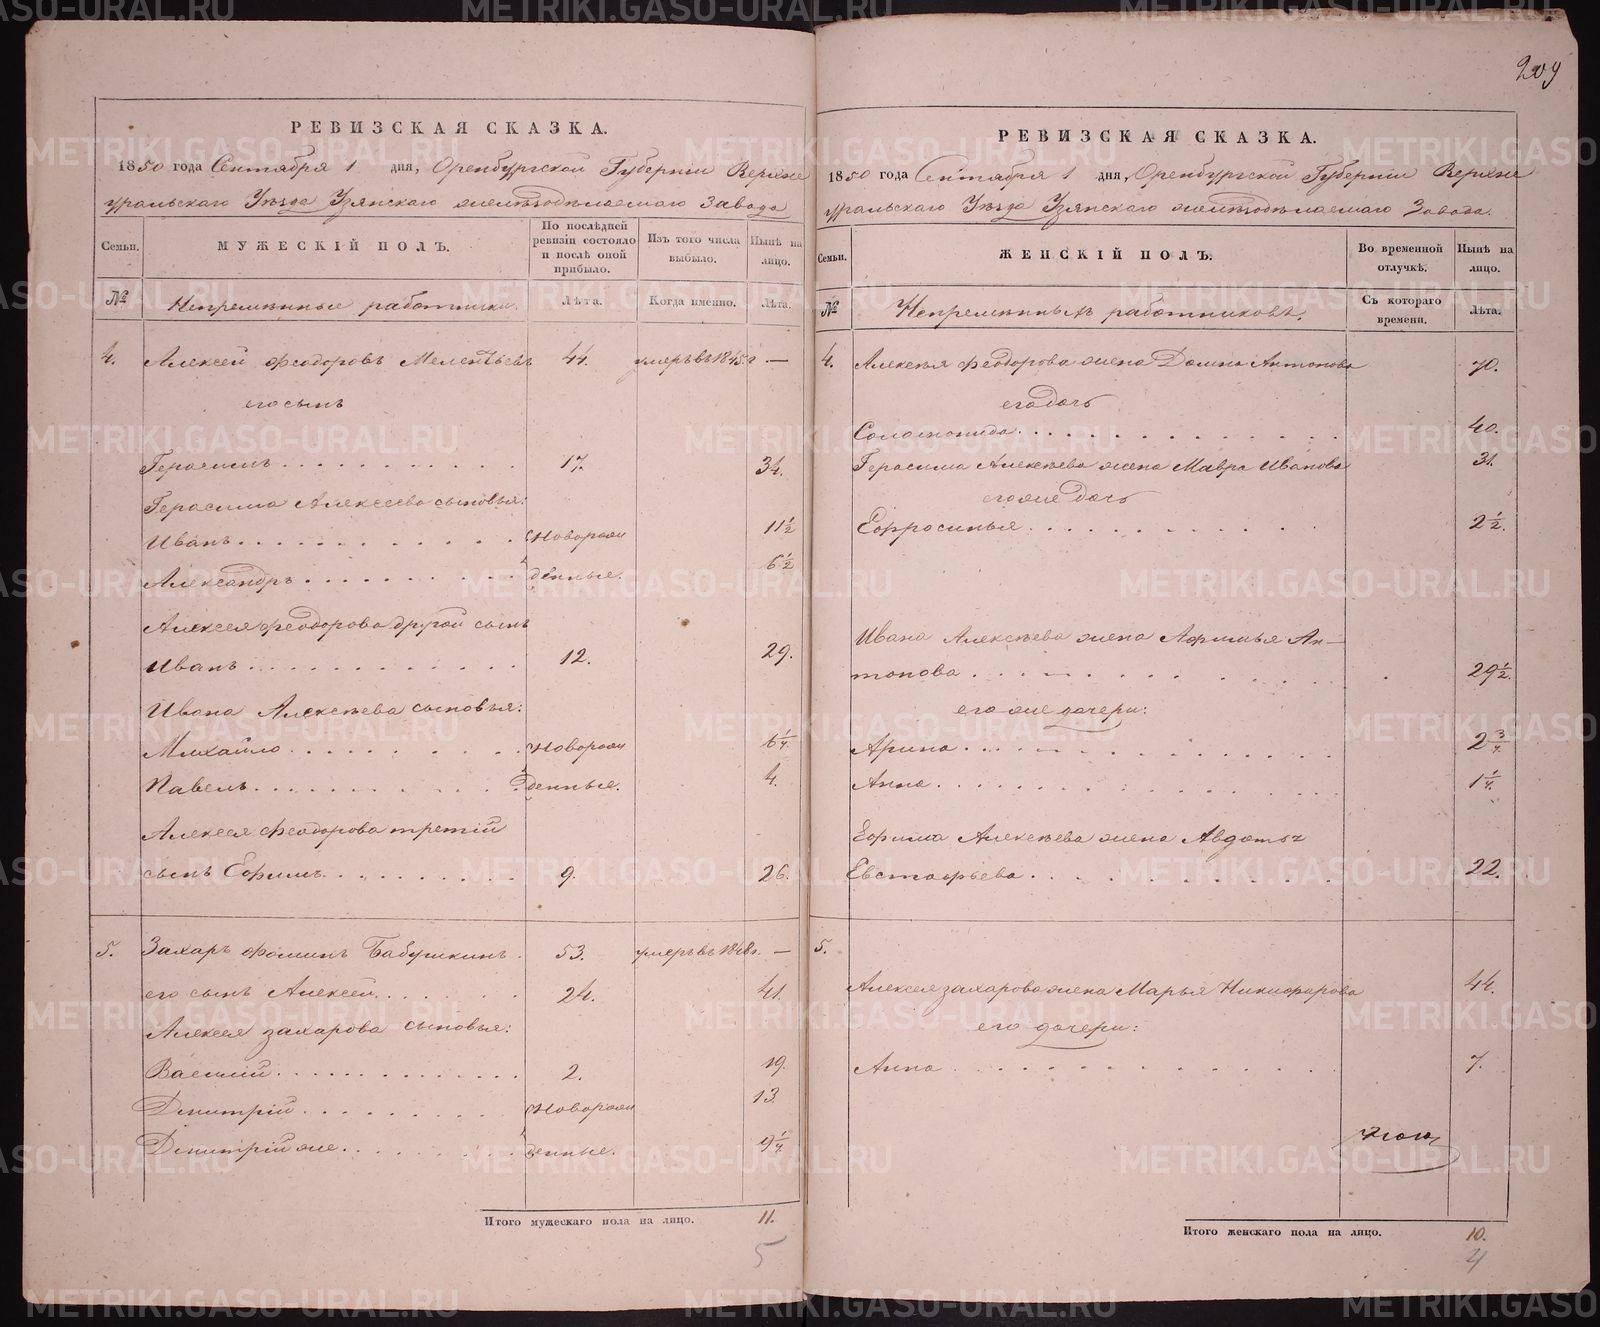 209
РЕВИЗСКАЯ СКАЗКА.
1850 года Сентября 1 дня, Оренбургской Губерніи Верхне
уральскаго Уѣзда Узянскаго желѣзодѣлаемаго Завода
Семьи.
МУЖЕСКІЙ ПОЛЪ.
По послѣдней ревизіи состояло и послѣ оной прибыло.
Изъ того числа выбыло.
Нынѣ на лицо.
№ Непремѣнные работники. Лѣта. Когда именно. Лѣта.
4. Алексей Феодоровъ Мелентьевъ 44. умеръ въ 1845 г —
его сынъ
Герасимъ 17. 34.
Герасима Алексеева сыновья:
Иванъ Новорож 11 1/2
Александръ денные. 6 1/2
Алексея Феодорова другой сынъ
Иванъ 12. 29.
Ивана Алексѣева сыновья:
Михайло Новорож 6 1/4
Павелъ денные. 4.
Алексея Феодорова третій
сынъ Ефимъ 9. 26.
5. Захаръ Фоминъ Бабушкинъ. 53. умеръ въ 1848 г. —
его сынъ Алексей 24. 41.
Алексея Захарова сыновье:
Василій 2. 19.
Дмитрій Новорож 13.
Дмитрій же денные. 9 1/4
Итого мужескаго пола на лицо. 11.
5
РЕВИЗСКАЯ СКАЗКА.
1850 года Сентября 1 дня, Оренбургской Губерніи Верхне
уральскаго Уѣзда Узянскаго желѣзодѣлаемаго Завода.
Семьи.
ЖЕНСКІЙ ПОЛЪ.
Во временной отлучкѣ.
Нынѣ на лицо.
№ Непремѣнныхъ работниковъ. Съ котораго времени. Лѣта.
4. Алексея Феодорова жена Домна Антонова 70.
его дочь
Соломонида 40.
Герасима Алексѣева жена Мавра Иванова 31.
его же дочь
Ефросинья 2 1/2.
Ивана Алексѣева жена Афимья Ан—
тонова 29 1/2.
его же дочери:
Арина 2 3/4.
Анна 1 1/4.
Ефима Алексѣева жена Авдотья
Евстафьева 22.
5.
Алексея Захарова жена Марья Никифорова 44.
его дочери:
Анна 7.
Итого женскаго пола на лицо. 10.
4
METRIKI.GASO-URAL.RU